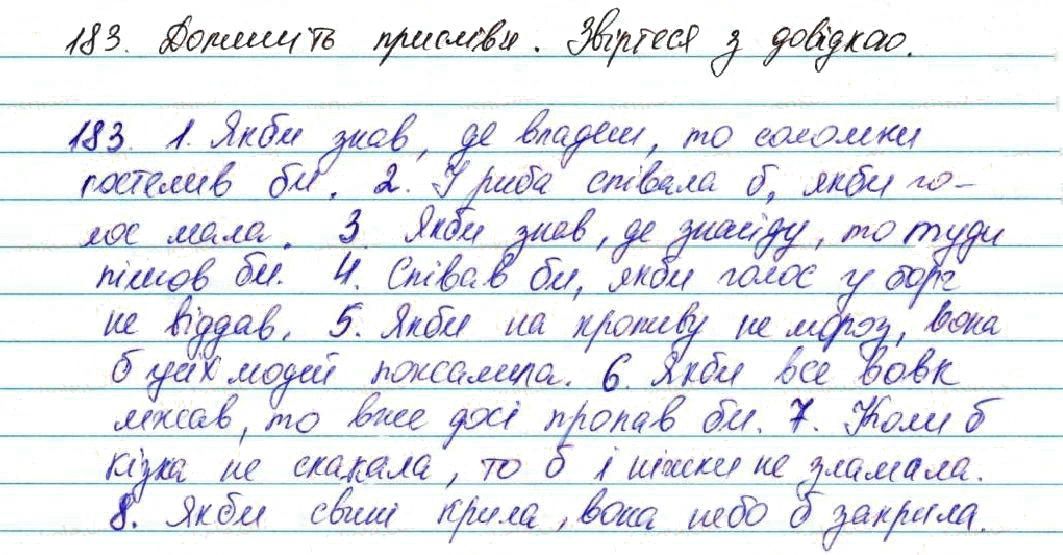 183. Допишіть прислівя. Звіртеся з довідкою.
183. 1. Якби знав, де впадеш, то соломки
постелив би. 2. І риба співала б, якби го-
лос мала. 3. Якби знав, де знайду, то туди
пішов би. 4. Співав би, якби голос у борг
не віддав. 5. Якби на кропиву не мороз, вона
б усіх людей пожалила. 6. Якби все вовк
лежав, то вже досі пропав би. 7. Коли б
кізка не скакала, то б і ніжки не зламала.
8. Якби свині крила, вона небо б закрила.